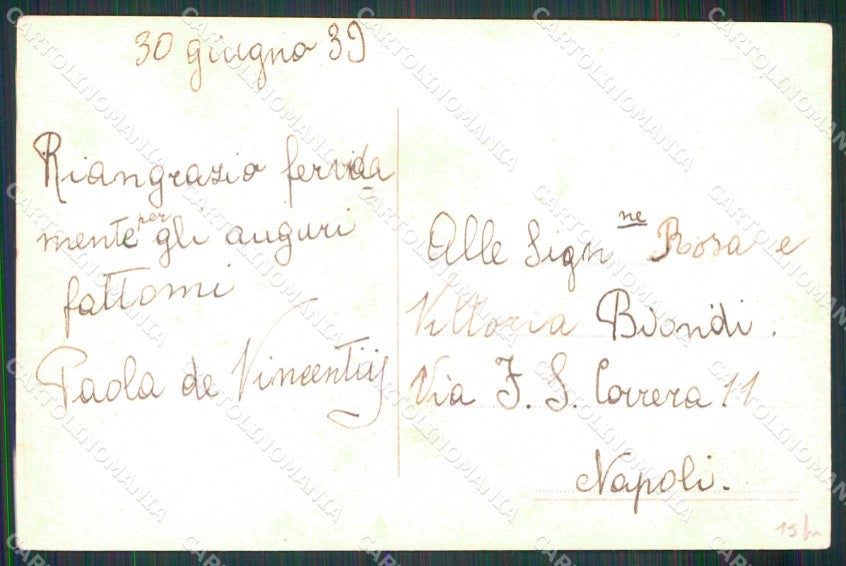 30 giugno 39
Riangrazio fervida
mente per gli auguri
fattomi
Paola de Vincentiis
Alle Sign ne Rosa e
Vittoria Biondi.
Via F. S. Correra 11
Napoli.
CARTOLINOMANIA